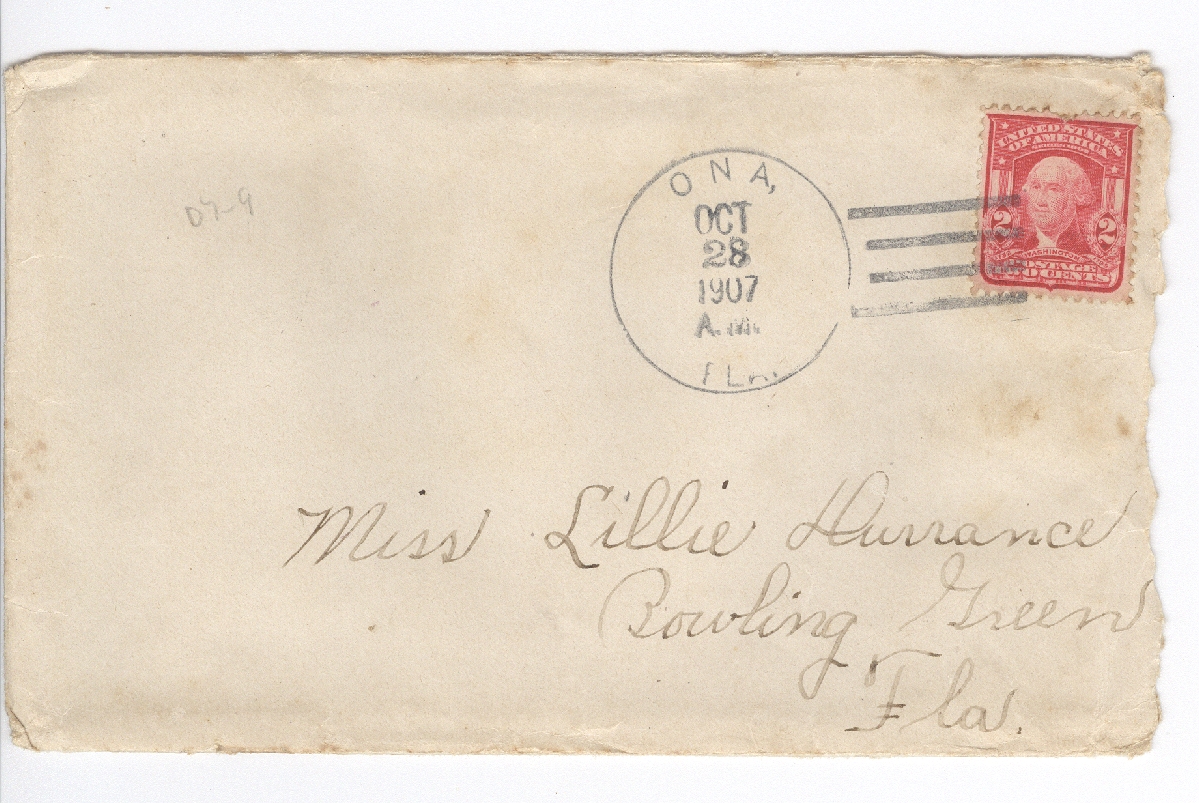 UNITED STATES
OF AMERICA
2 2
WASHINGTON
POSTAGE
TWO CENTS
ONA,
OCT
28
1907
A.M.
FLA.
07-9
Miss Lillie Hurrance
Bowling Green
Fla.